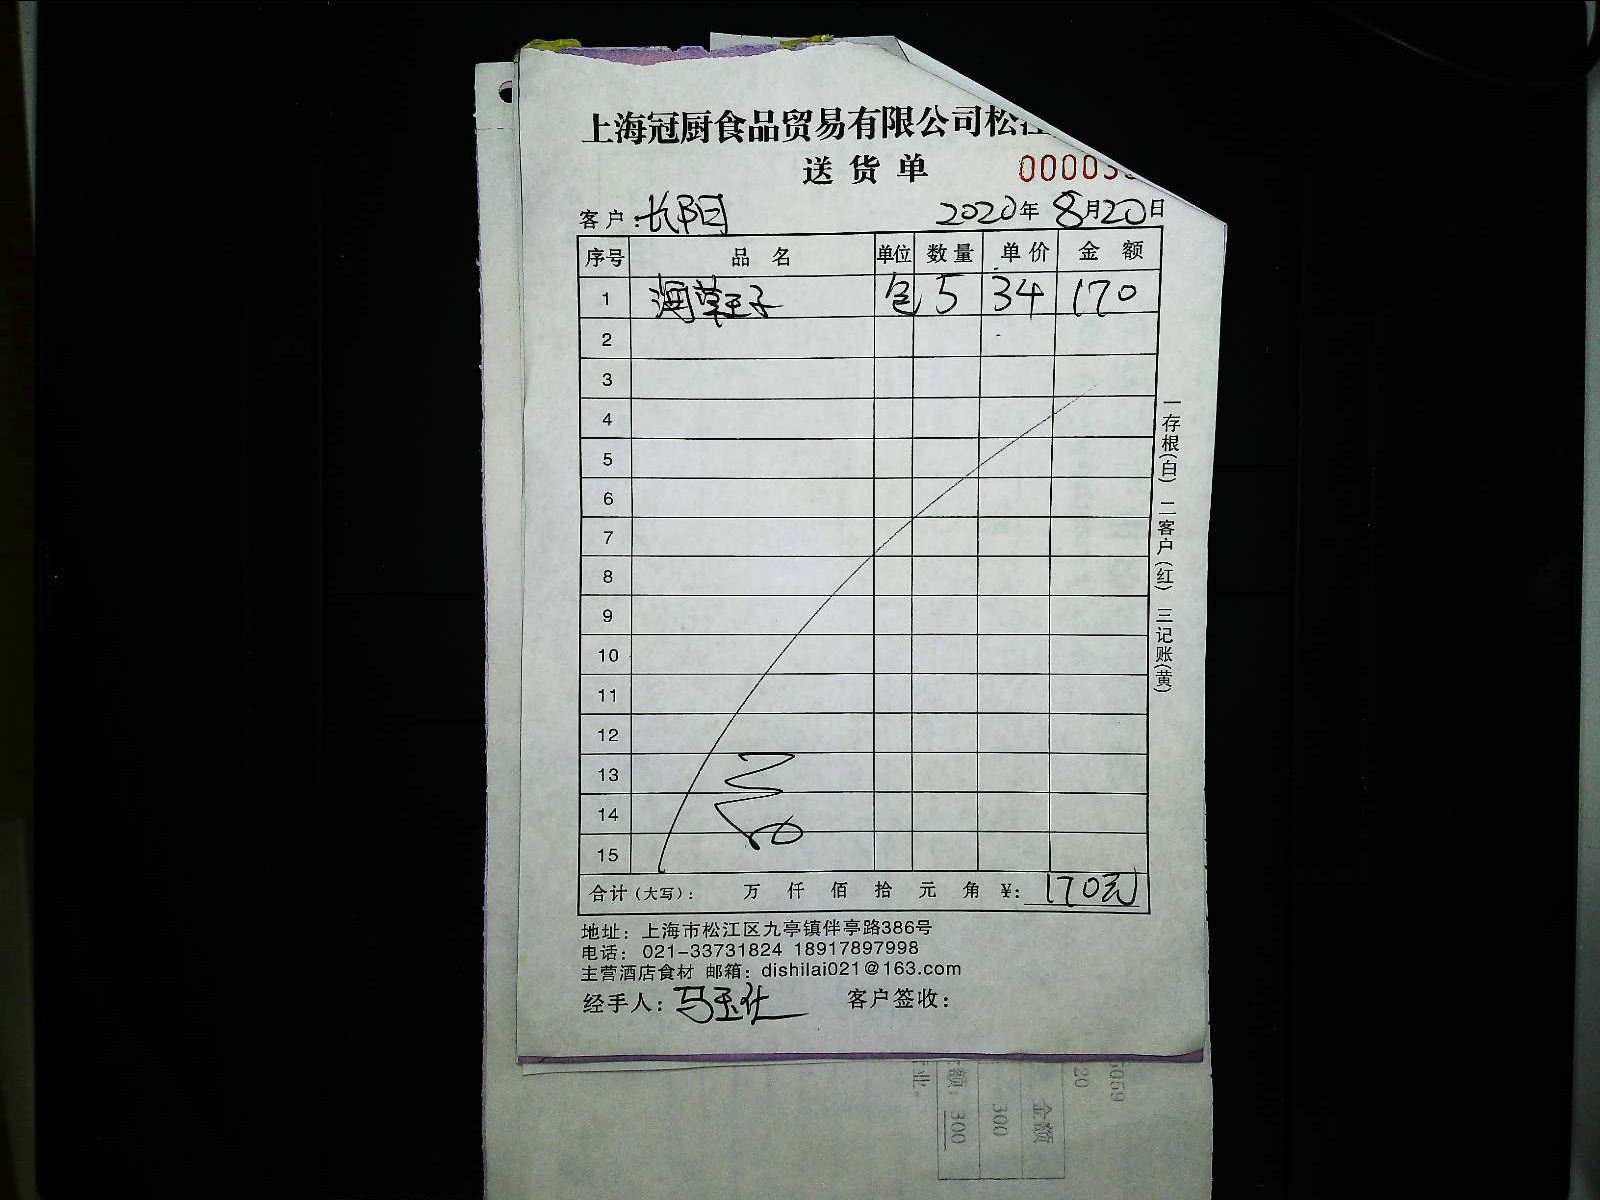 上海冠厨食品贸易有限公司松江
送货单 00003
客户：长阳 2020年8月20日
序号 品名 单位 数量 单价 金额
1 海草王子 包 5 34 170
2
3
4
5
6
7
8
9
10
11
12
13
14
15
合计（大写）： 万 仟 佰 拾 元 角 ¥：170元
一存根(白) 二客户(红) 三记账(黄)
地址：上海市松江区九亭镇伴亭路386号
电话：021-33731824 18917897998
主营酒店食材 邮箱：dishilai021@163.com
经手人：马玉仕 客户签收：
5059
20
金额
300
额：300
业。